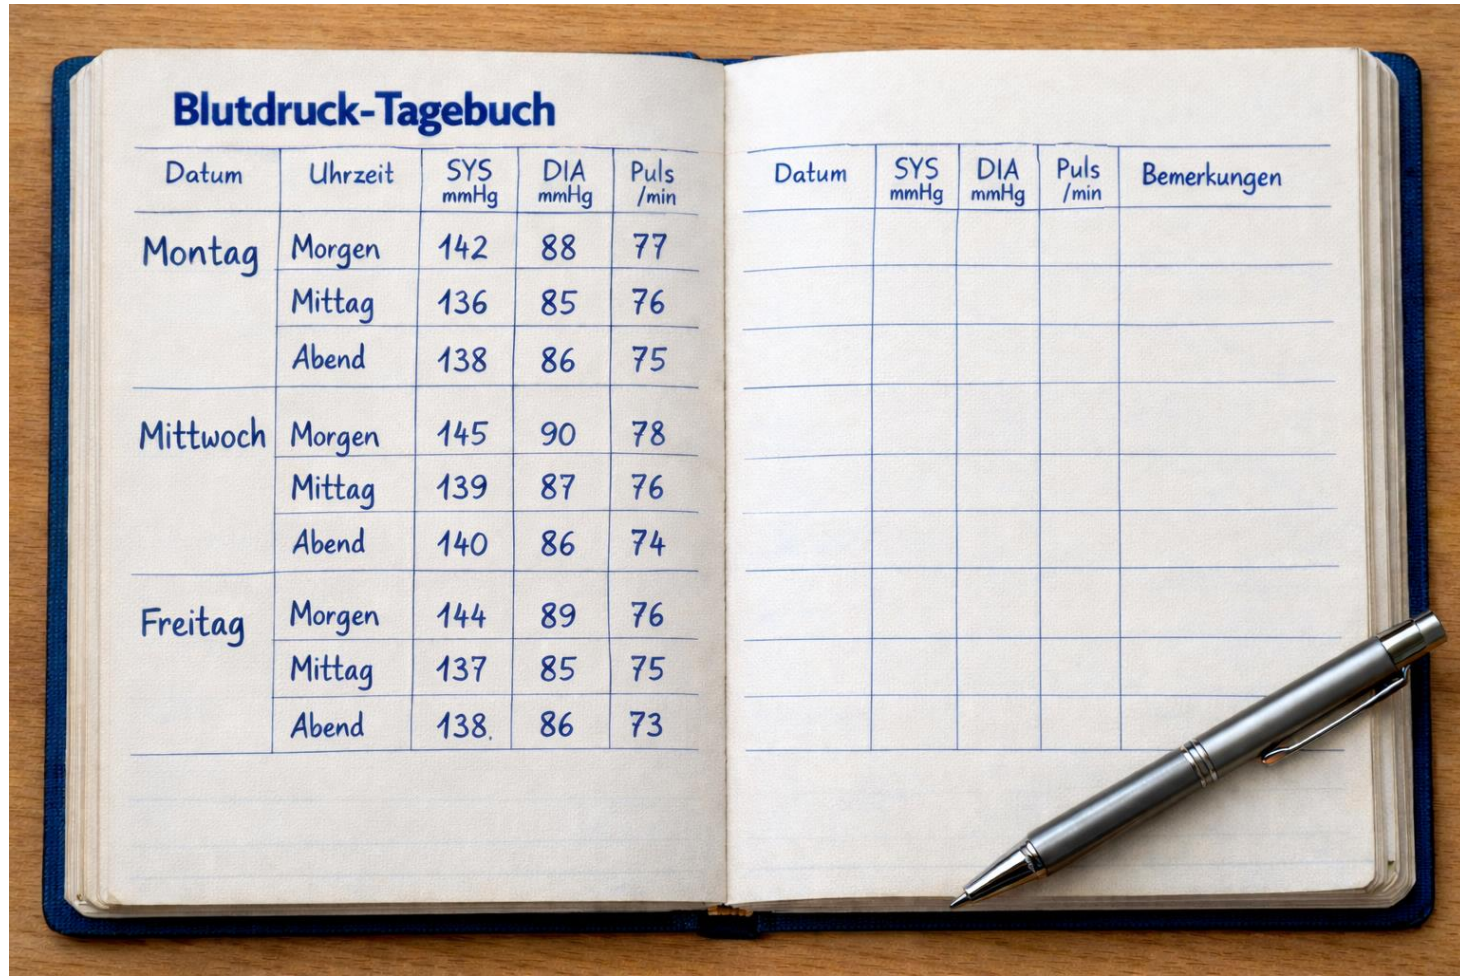 Blutdruck-Tagebuch
Datum Uhrzeit SYS mmHg DIA mmHg Puls /min
Montag Morgen 142 88 77
Mittag 136 85 76
Abend 138 86 75
Mittwoch Morgen 145 90 78
Mittag 139 87 76
Abend 140 86 74
Freitag Morgen 144 89 76
Mittag 137 85 75
Abend 138. 86 73
Datum SYS mmHg DIA mmHg Puls /min Bemerkungen